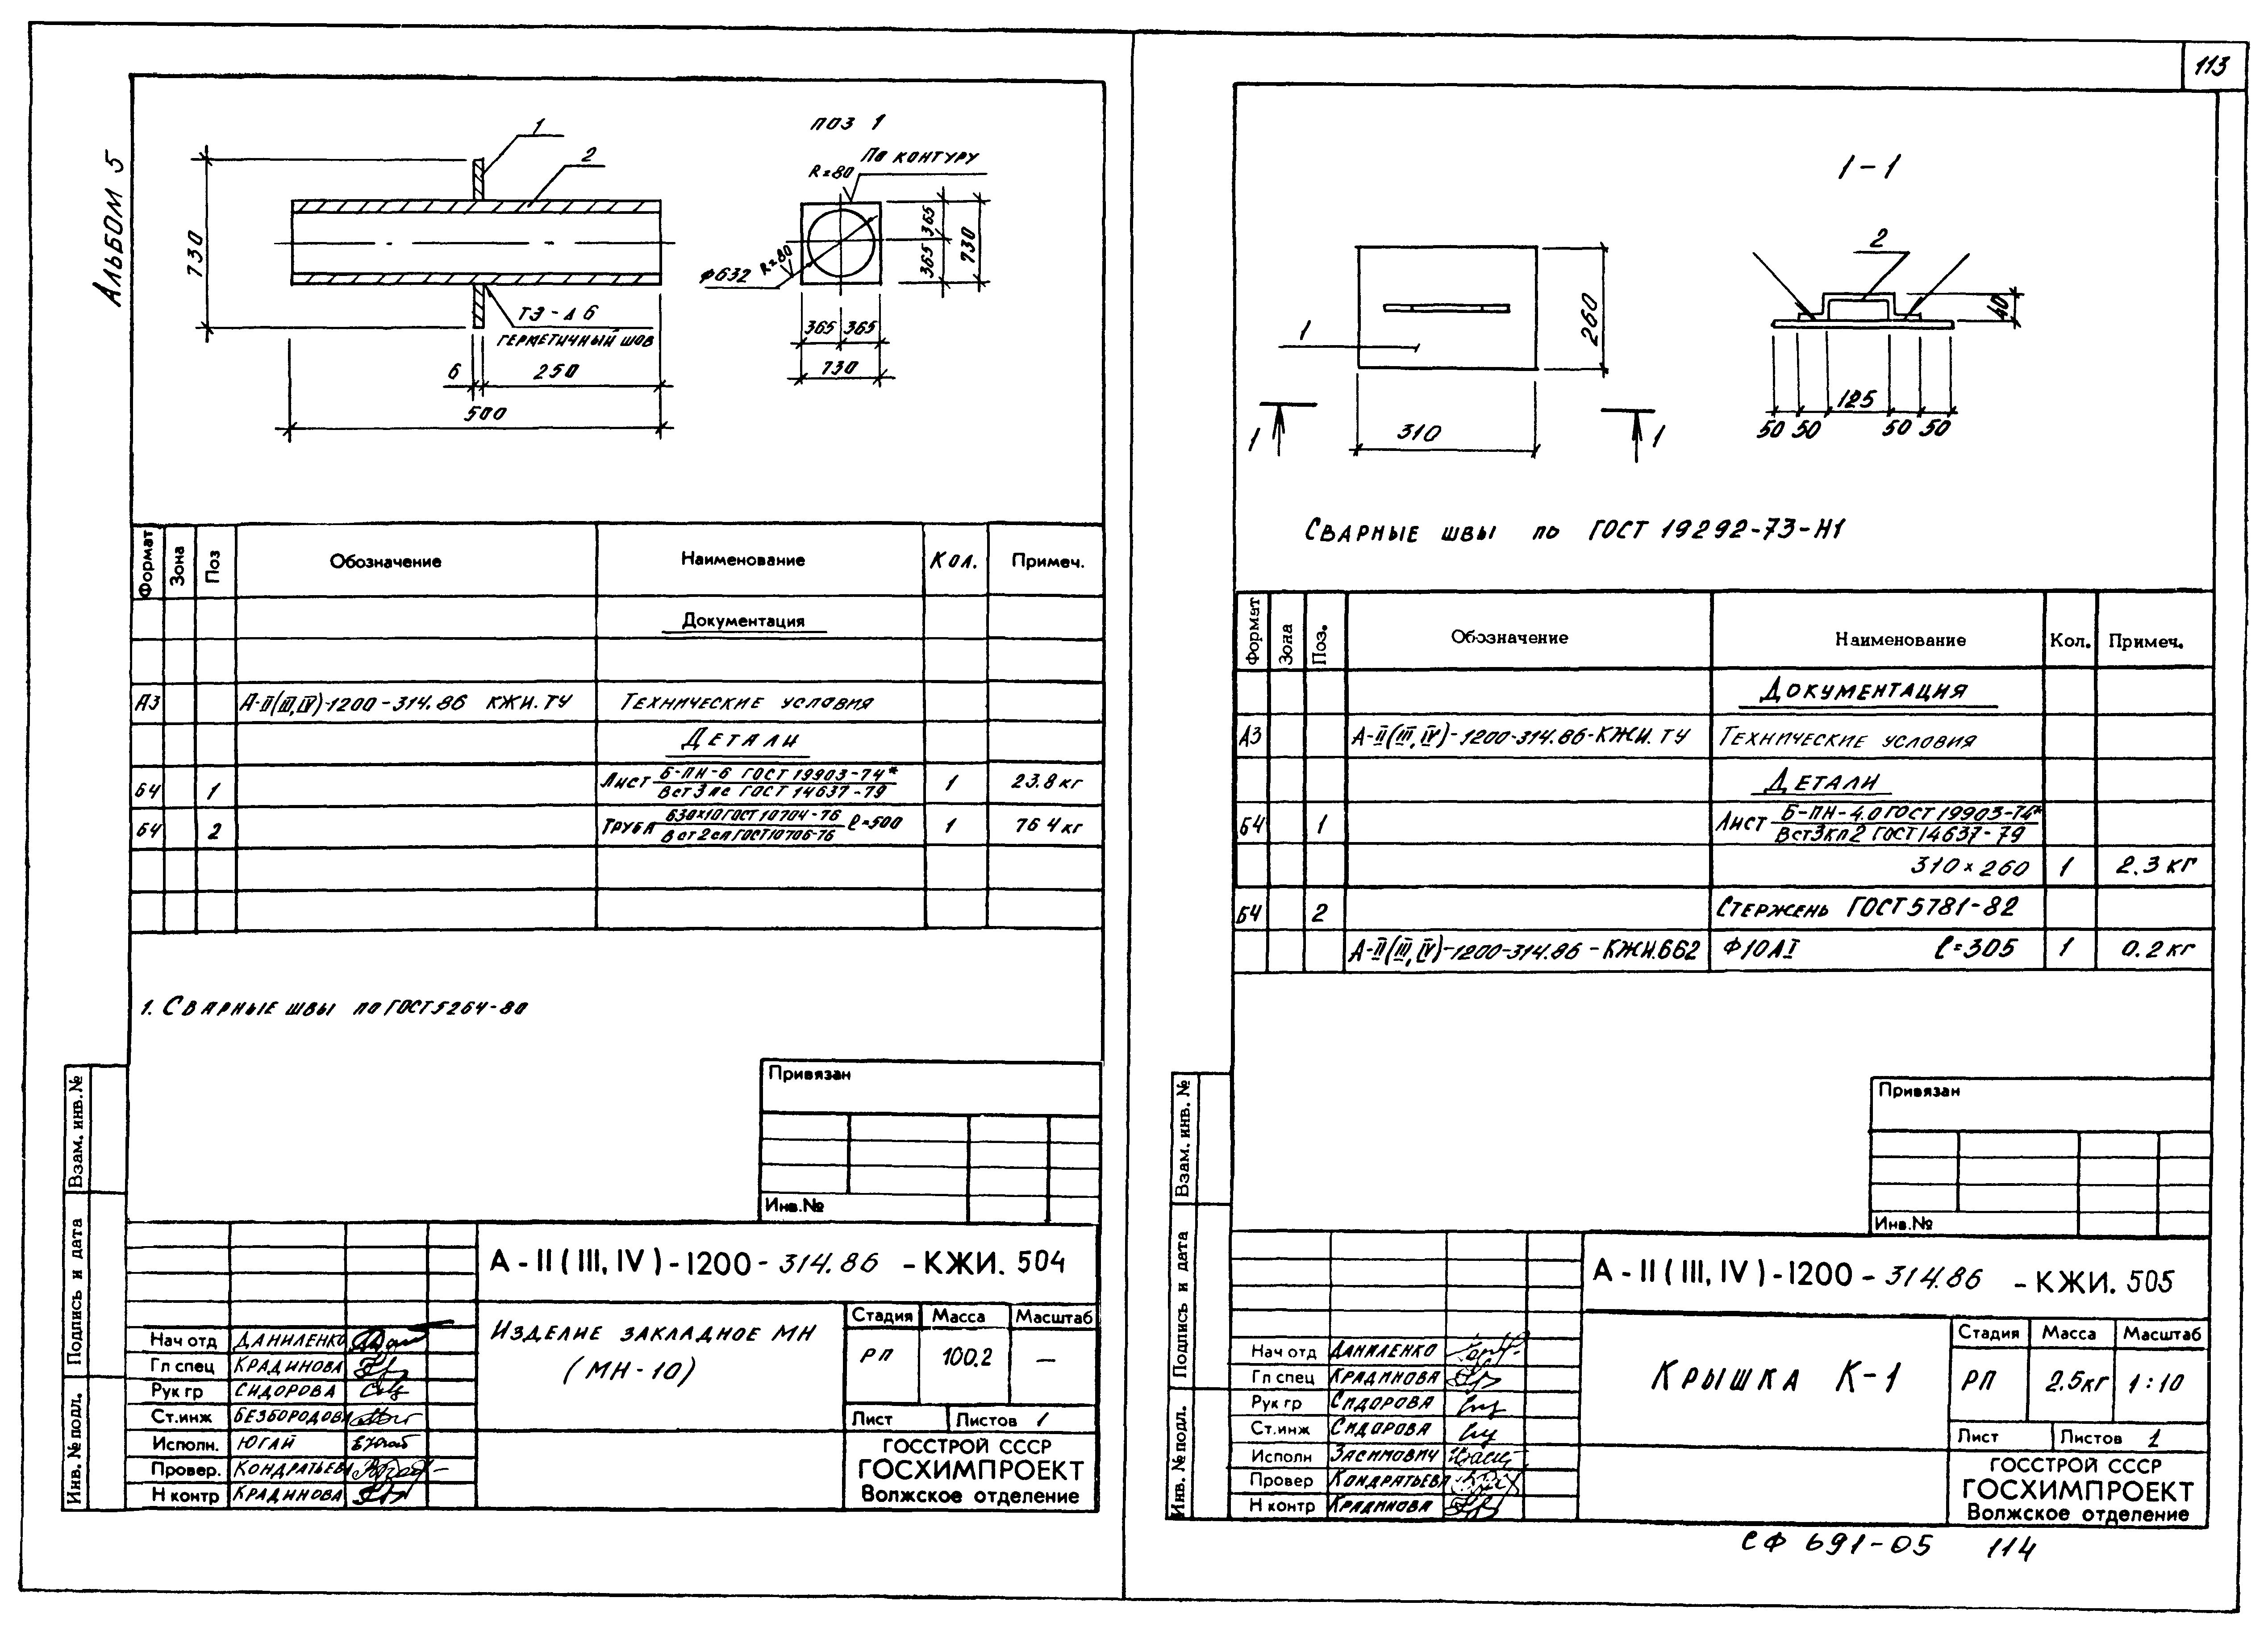 113
АЛЬБОМ 5
1
2
730
ТЭ-Δ6
ГЕРМЕТИЧНЫЙ ШОВ
6
250
500
ПОЗ 1
ПО КОНТУРУ
R=80
R=80
ф632
365
365
730
365
365
730
Формат
Зона
Поз
Обозначение
Наименование
Кол.
Примеч.
Документация
А3
А-II(III,IV)-1200-314.86 КЖИ.ТУ
ТЕХНИЧЕСКИЕ УСЛОВИЯ
ДЕТАЛИ
Б4
1
ЛИСТ
Б-ПН-6 ГОСТ 19903-74*
ВСт3пс ГОСТ 14637-79
1
23.8 кг
Б4
2
ТРУБА
630×10 ГОСТ 10704-76
ВСт2сп ГОСТ 10706-76
ℓ=500
1
76 4 кг
1. СВАРНЫЕ ШВЫ ПО ГОСТ 5264-80
Привязан
Инв.№
Взам. инв. №
Подпись и дата
Инв. № подл.
А-II(III,IV)-1200-314.86 -КЖИ. 504
ИЗДЕЛИЕ ЗАКЛАДНОЕ МН
(МН-10)
Стадия
Масса
Масштаб
РП
100.2
—
Лист
Листов 1
ГОССТРОЙ СССР
ГОСХИМПРОЕКТ
Волжское отделение
Нач отд ДАНИЛЕНКО
Гл спец КРАДИНОВА
Рук гр СИДОРОВА
Ст.инж БЕЗБОРОДОВА
Исполн. ЮГАЙ
Провер. КОНДРАТЬЕВА
Н контр КРАДИНОВА
1-1
1
260
310
1
1
2
40
125
50 50
50 50
СВАРНЫЕ ШВЫ ПО ГОСТ 19292-73-Н1
Формат
Зона
Поз.
Обозначение
Наименование
Кол.
Примеч.
ДОКУМЕНТАЦИЯ
А3
А-II(III,IV)-1200-314.86-КЖИ.ТУ
ТЕХНИЧЕСКИЕ УСЛОВИЯ
ДЕТАЛИ
Б4
1
ЛИСТ
Б-ПН-4.0 ГОСТ 19903-74*
ВСт3кп2 ГОСТ 14637-79
310×260
1
2.3 кг
Б4
2
СТЕРЖЕНЬ ГОСТ 5781-82
А-II(III,IV)-1200-314.86-КЖИ.662
Ф10АI
ℓ=305
1
0.2 кг
Привязан
Инв.№
Взам. инв. №
Подпись и дата
Инв. № подл.
А-II(III,IV)-1200-314.86 -КЖИ. 505
КРЫШКА К-1
Стадия
Масса
Масштаб
РП
2.5кг
1:10
Лист
Листов 1
ГОССТРОЙ СССР
ГОСХИМПРОЕКТ
Волжское отделение
Нач отд ДАНИЛЕНКО
Гл спец КРАДИНОВА
Рук гр СИДОРОВА
Ст.инж СИДОРОВА
Исполн ЗАСИМОВИЧ
Провер КОНДРАТЬЕВА
Н контр КРАДИНОВА
СФ 691-05 114